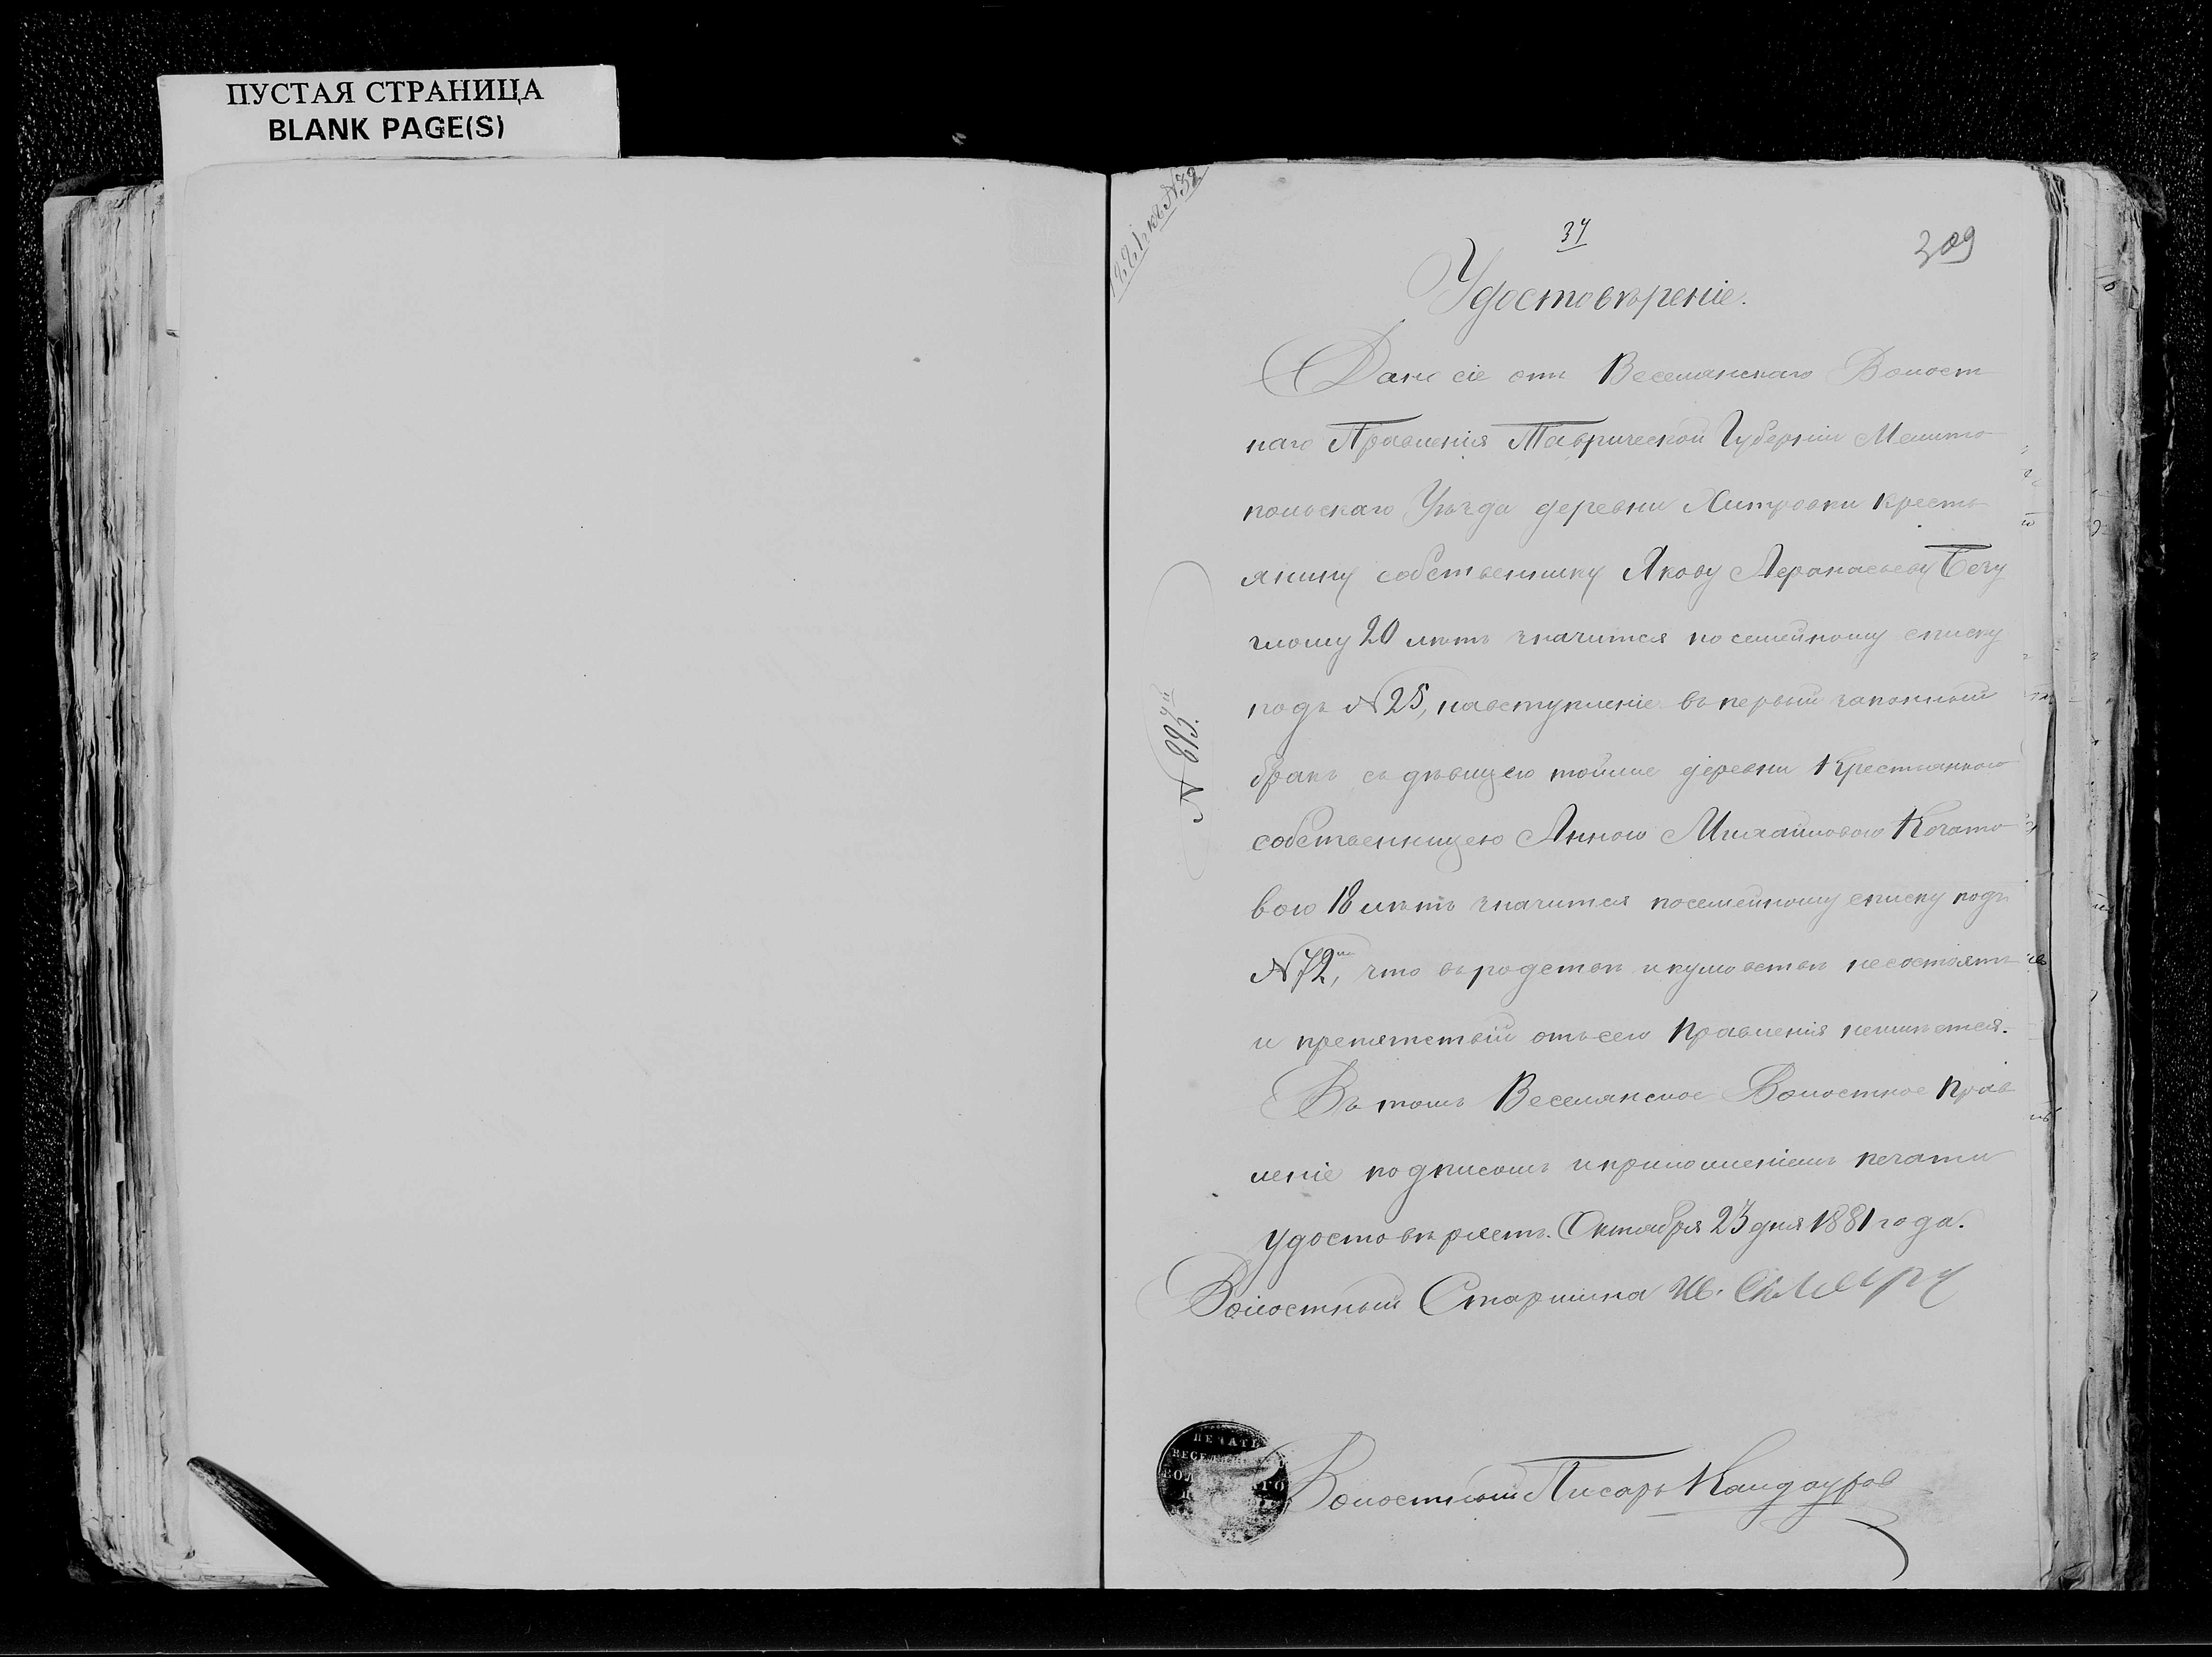 ПУСТАЯ СТРАНИЦА
BLANK PAGE(S)
1881 къ №32
34
309
Удостовѣреніе.
Дано сіе отъ Веселянскаго Волост
наго Правленія Таврической Губерніи Мелито
польскаго Уѣзда деревни Хитровки Кресть
янину собственнику Якову Афанасьеву Безу
глому 20 лѣтъ значится по семейному списку
подъ №25, навступленіе въ первый законный
бракъ съ дѣвицею тойже деревни Крестьянкою
собственницею Анною Михайловою Когато
вою 18 лѣтъ значится посемейному списку подъ
№72, что въ родствѣ икумовствѣ несостоятъ
и препятствій отъ сего Правленія неимѣется.
Въ томъ Веселянское Волостное Прав
леніе подписомъ иприложеніемъ печати
удостовѣряетъ. Октября 23 дня 1881 года.
Волостный Старшина
№ 893.
ПЕЧАТЬ
Волостный Писарь Кандауров